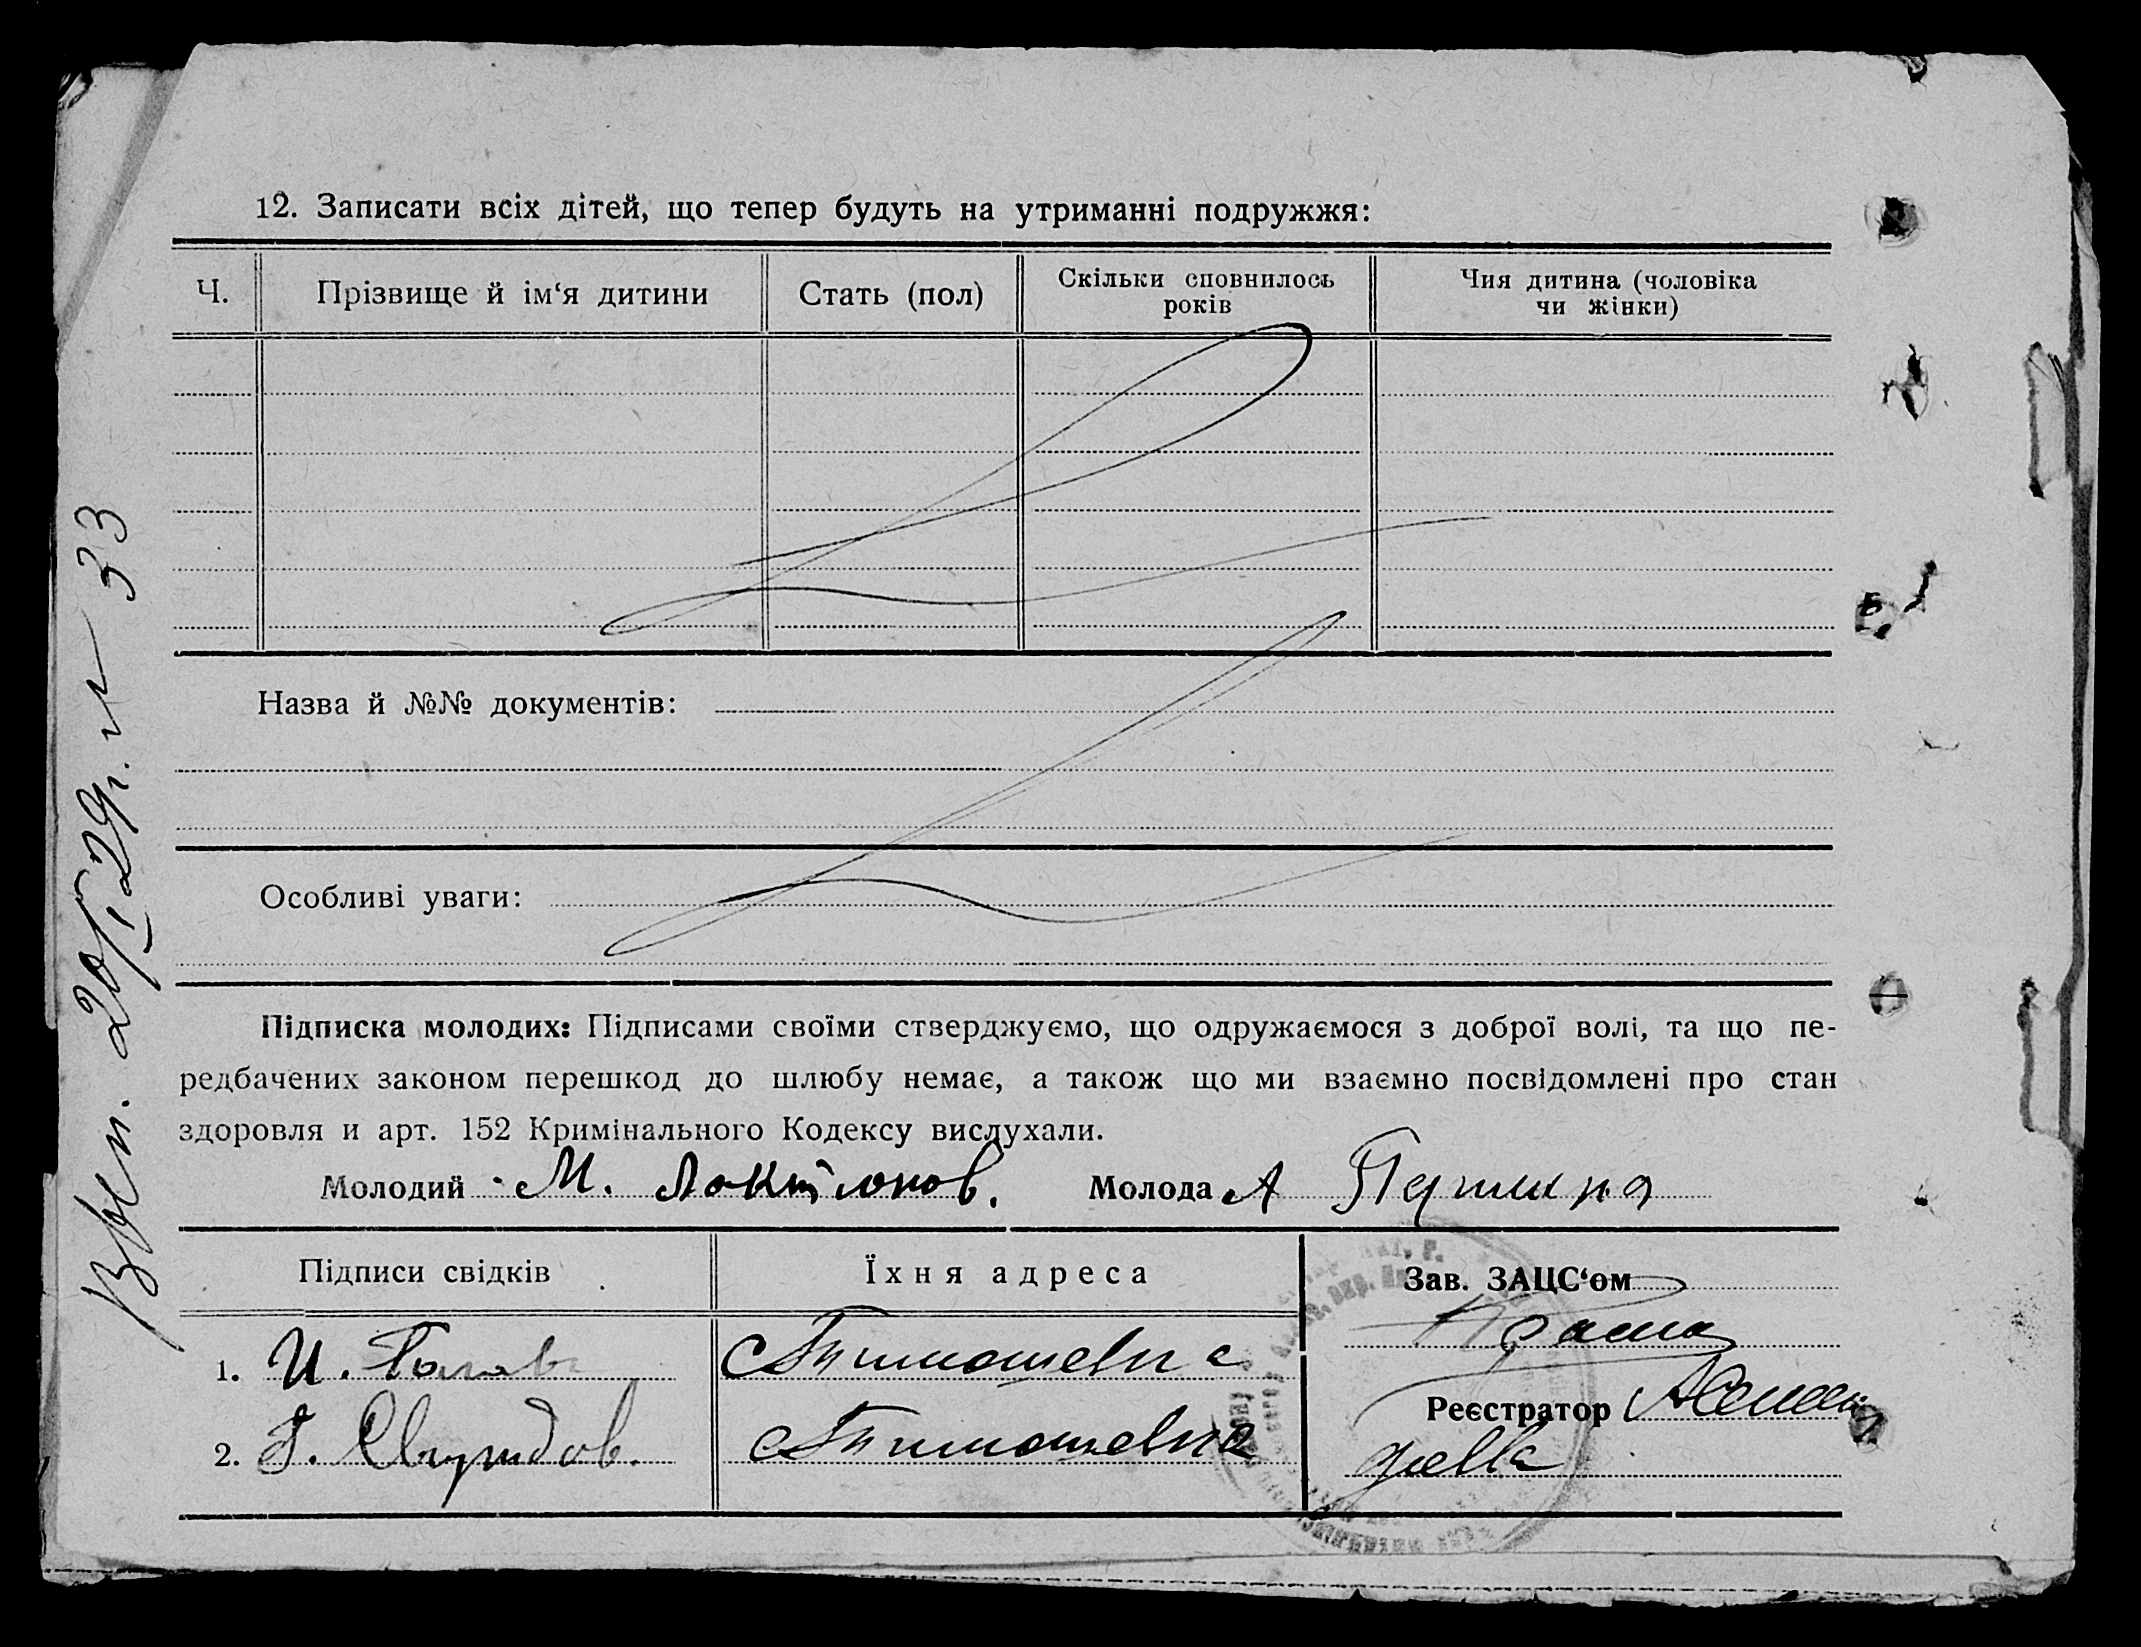 12. Записати всіх дітей, що тепер будуть на утриманні подружжя:
Ч.
Прізвище й ім‘я дитини
Стать (пол)
Скільки сповнилось
років
Чия дитина (чоловіка
чи жінки)
Назва й №№ документів:
Особливі уваги:
Підписка молодих: Підписами своїми стверджуємо, що одружаємося з доброї волі, та що пе-
редбачених законом перешкод до шлюбу немає, а також що ми взаємно посвідомлені про стан
здоровля и арт. 152 Кримінального Кодексу вислухали.
Молодий М. Локтіонов. Молода А
Підписи свідків
Їхня адреса
Зав. ЗАЦС‘ом
1. И.
с Тимошевка
2. Г.
с Тимошевка
Реєстратор
29 г. 33